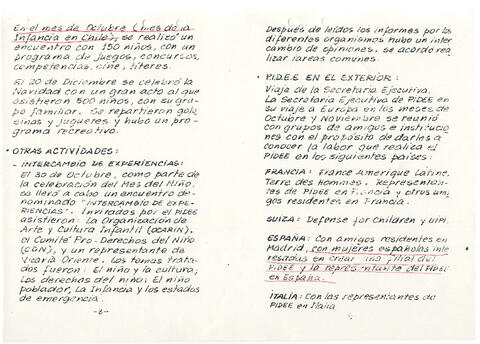 En el mes de Octubre (mes de la
Infancia en Chile), se realizó un
encuentro con 150 niños, con un
programa de juegos, concursos,
competencias, cine, títeres.
El 20 de Diciembre se celebró la
Navidad con un gran acto al que
asistieron 500 niños, con su gru-
po familiar. Se repartieron golo
sinas y juguetes y hubo un pro-
grama recreativo.
• OTRAS ACTIVIDADES:
- INTERCAMBIO DE EXPERIENCIAS:
El 30 de Octubre, como parte de
la celebración del Mes del Niño,
se llevó a cabo un encuentro de-
nominado "INTERCAMBIO DE EXPE-
RIENCIAS". Invitados por el PIDEE
asistieron: La Organización de
Arte y Cultura Infantil (OCARIN),
el Comité Pro-Derechos del Niño
(CDN), y un representante de
Vicaría Oriente. Los temas trata-
dos fueron: El niño y la cultura;
Los derechos del niño; El niño
poblador, La Infancia y los estados
de emergencia.
-8-
Después de leídos los informes por los
diferentes organismos hubo un inter
cambio de opiniones, se acordó rea
lizar tareas comunes.
• P.I.D.E.E EN EL EXTERIOR:
Viaje de la Secretaria Ejecutiva.
La Secretaria Ejecutiva de PIDEE en
su viaje a Europa en los meses de
Octubre y Noviembre se reunió
con grupos de amigos e institucio
nes con el propósito de darles a
conocer la labor que realiza el
PIDEE en los siguientes países:
FRANCIA: France Amerique Latine.
Terre des Hommes. Representan-
tes de PIDEE en Francia y otros ami
gos residentes en Francia.
SUIZA: Defense for Children y
ESPAÑA: Con amigos residentes en
Madrid, con mujeres españolas inte
resadas en crear una filial del
PIDEE y la representante del PIDEE
en España.
ITALIA: Con las representantes de
PIDEE en Italia